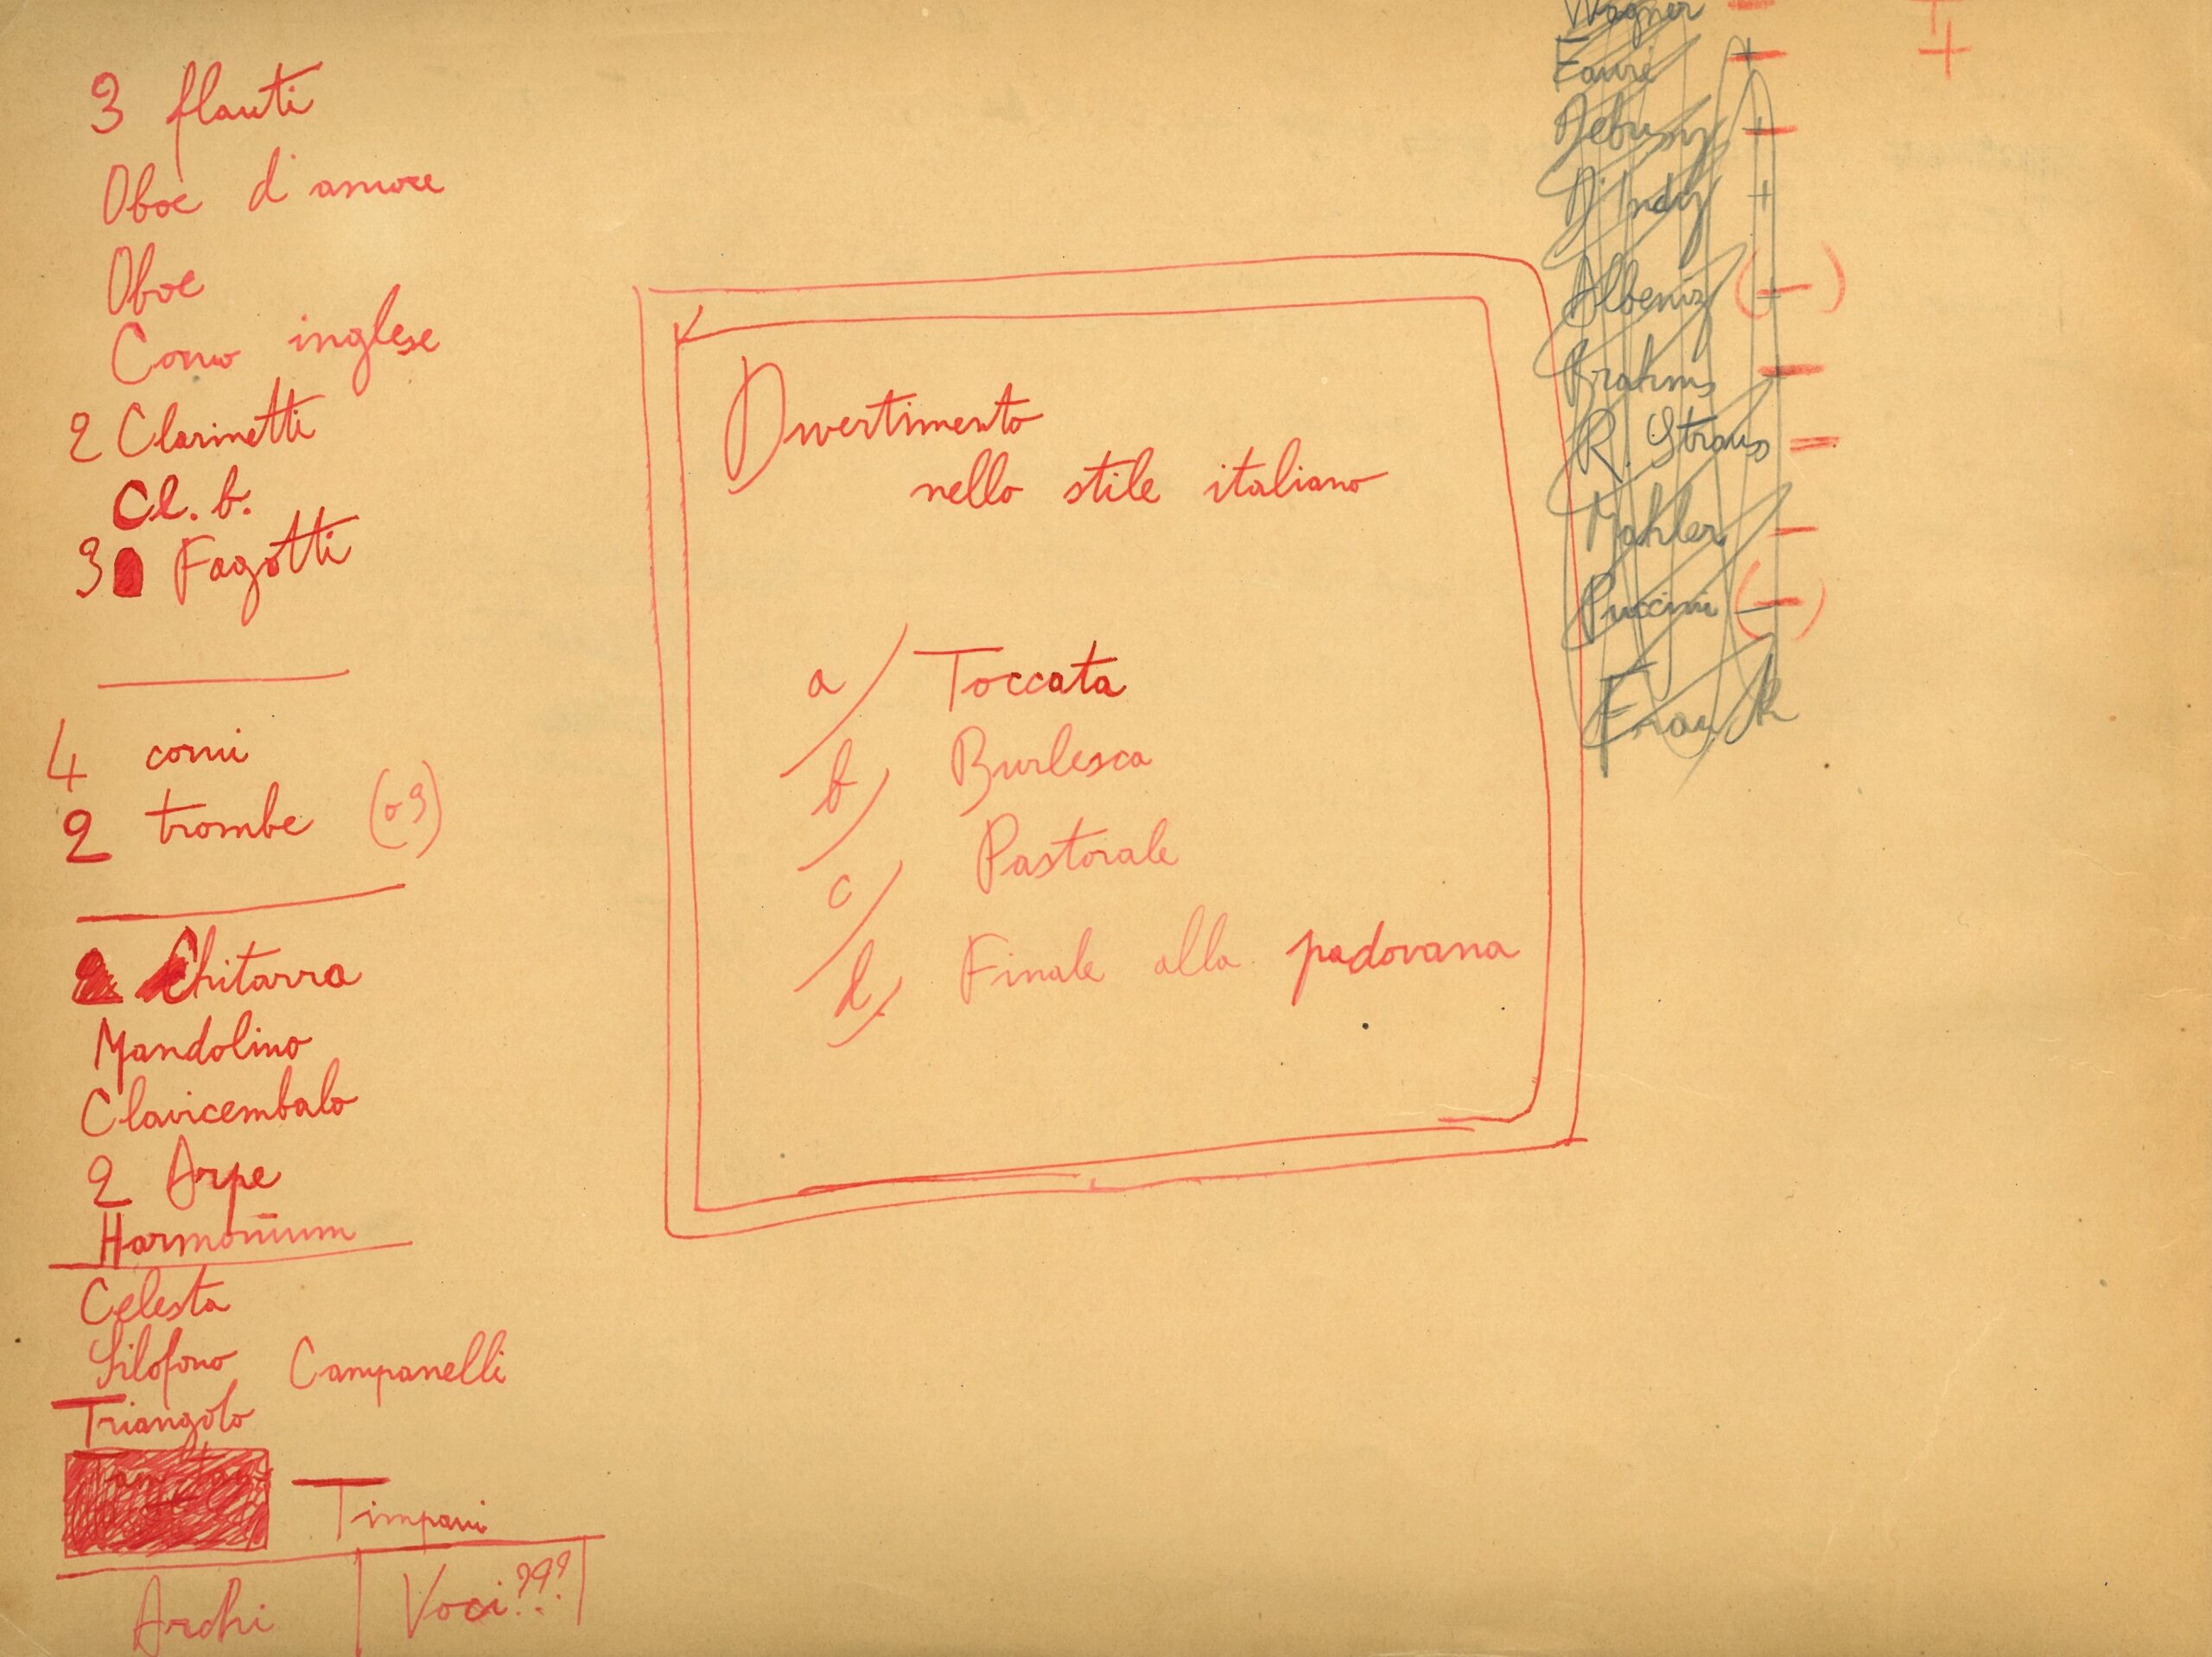 3 flauti
Oboe d'amore
Oboe
Corno inglese
2 Clarinetti
Cl. b.
3 Fagotti
4 corni
2 trombe (o 3)
Chitarra
Mandolino
Clavicembalo
2 Arpe
Harmonium
Celesta
Silofono Campanelli
Triangolo
Timpani
Archi Voci???
Divertimento
nello stile italiano
a) Toccata
b) Burlesca
c) Pastorale
d) Finale alla padovana
Wagner -
Fauré + +
Debussy +
D'Indy +
Albeniz (-)
Brahms -
R. Strauss -
Mahler -
Puccini (-)
Franck